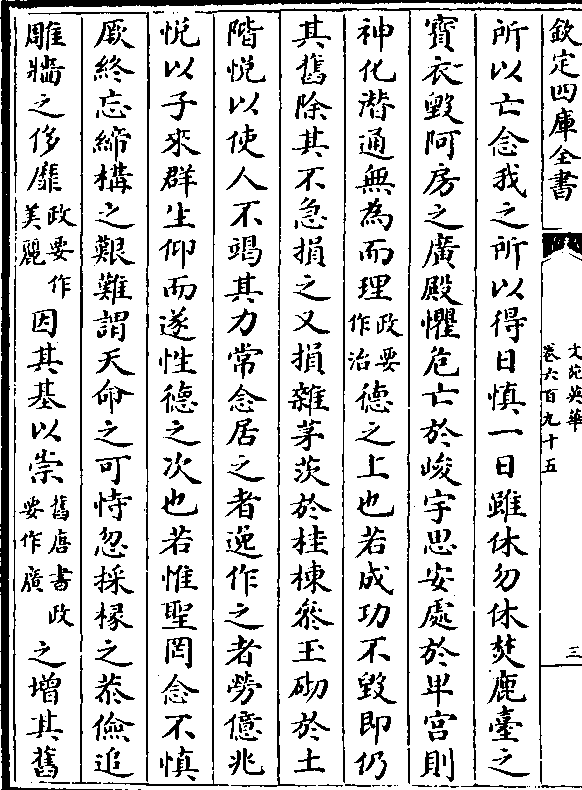 欽定四庫全書
文苑英華
卷六百九十五
三
所以亡念我之所以得日慎一日雖休勿休焚鹿臺之
寳衣毀阿房之廣殿懼危亡於峻宇思安處於卑宮則
神化潛通無為而理政要作治德之上也若成功不毀即仍
其舊除其不急損之又損雜茅茨於桂棟參玉砌於土
階悅以使人不竭其力常念居之者逸作之者勞億兆
悅以子來群生仰而遂性德之次也若惟聖罔念不慎
厥終忘締構之艱難謂天命之可恃忽採椽之恭儉追
雕牆之侈靡政要作美麗因其基以崇舊唐書政要作廣之增其舊